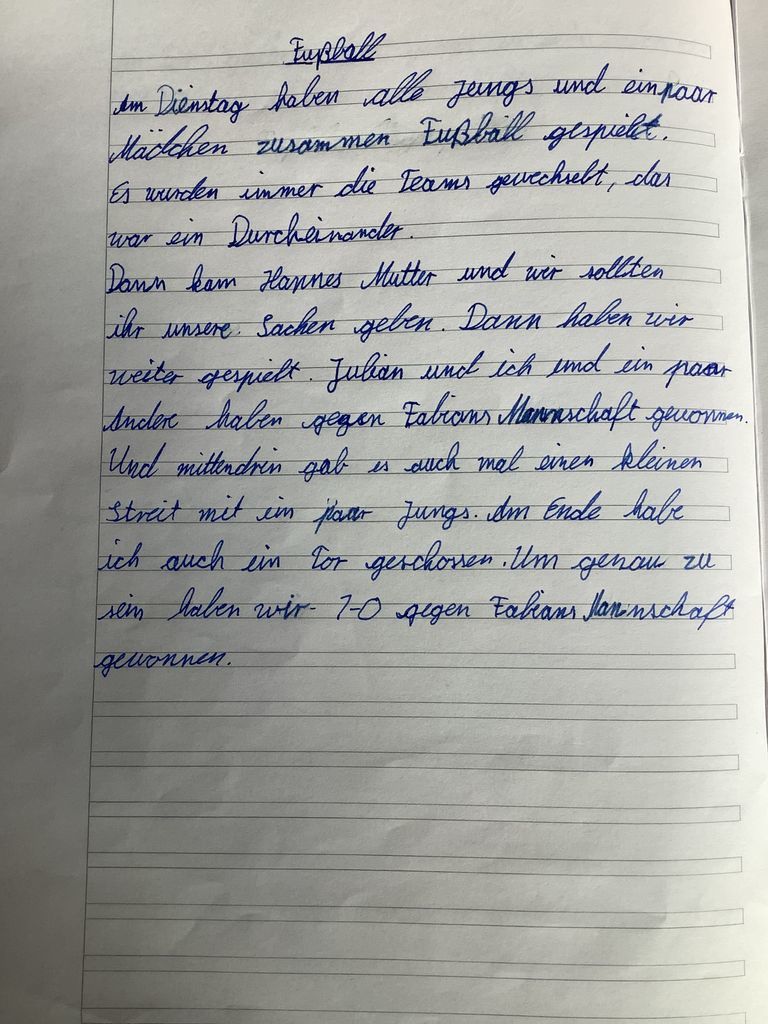 Fußball
Am Dienstag haben alle Jungs und einpaar
Mädchen zusammen Fußball gespielt.
Es wurden immer die Teams gewechselt, das
war ein Durcheinander.
Dann kam Hannes Mutter und wir sollten
ihr unsere Sachen geben. Dann haben wir
weiter gespielt. Julian und ich und ein paar
Andere haben gegen Fabians Mannschaft gewonnen.
Und mittendrin gab es auch mal einen kleinen
Streit mit ein paar Jungs. Am Ende habe
ich auch ein Tor geschossen. Um genau zu
sein haben wir 7-0 gegen Fabians Mannschaft
gewonnen.